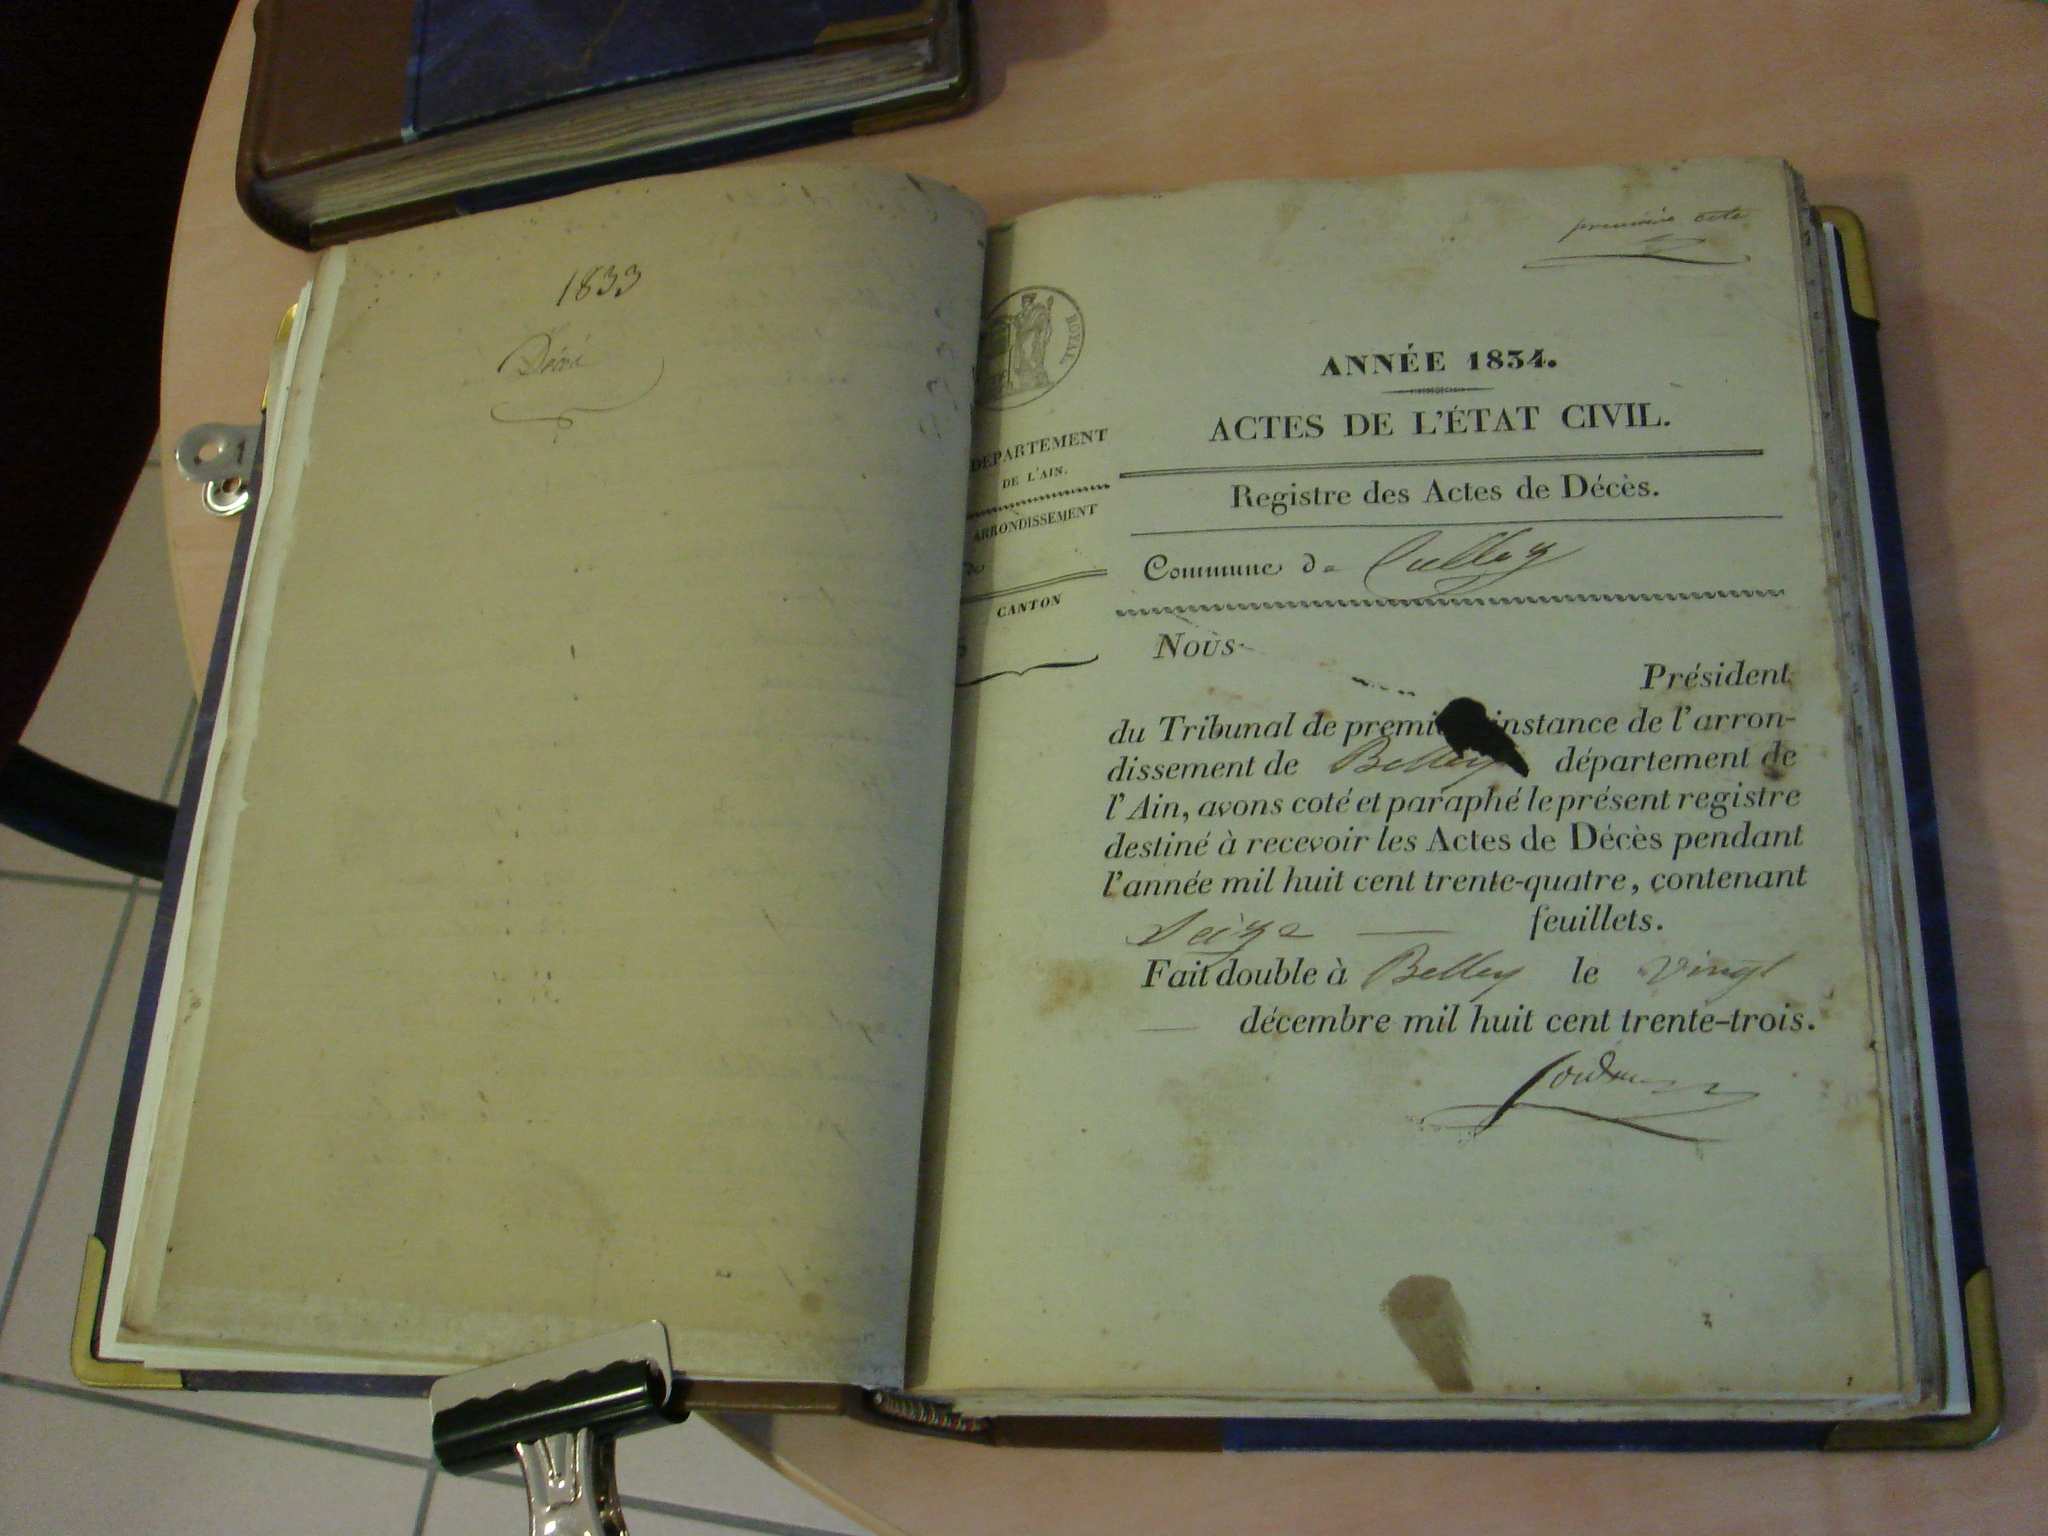 1833
première acte
ROYAL
ANNÉE 1834.
ACTES DE L'ÉTAT CIVIL.
DÉPARTEMENT
DE L'AIN.
ARRONDISSEMENT
de
CANTON
Registre des Actes de Décès.
Commune de Culloz
Nous
Président
du Tribunal de premi instance de l'arron-
dissement de Belley département de
l'Ain, avons coté et paraphé le présent registre
destiné à recevoir les Actes de Décès pendant
l'année mil huit cent trente-quatre, contenant
Seize feuillets.
Fait double à Belley le vingt
décembre mil huit cent trente-trois.
1